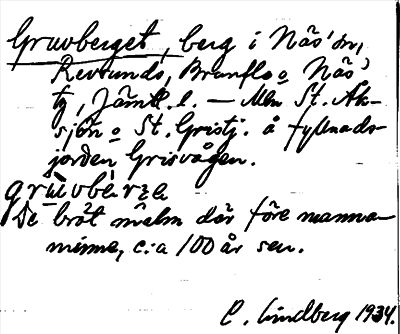 Gruvberget, berg i Näs' sn,
Revsunds, Brunflo o Näs'
tg, Jämtl. l. — Mln St. Ak-
sjön o St. Gristj. å fyllnads-
jorden Grisvågen.
grùvbèrʒe
De bröt malm där före manna-
minne, c:a 100 år sen.
C. Lindberg 1934.